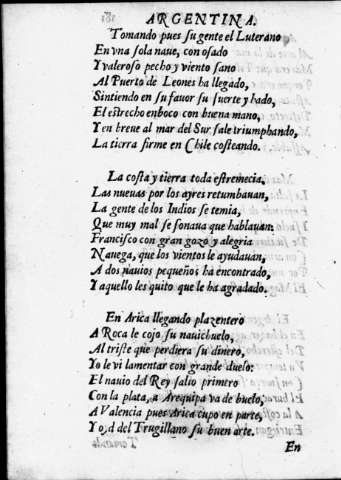 ARGENTINA.
Tomando pues su gente el Luterano
En vna sola naue, con osado
Y valeroso pecho y viento sano
Al Puerto de Leones ha llegado,
Sintiendo en su fauor su suerte y hado,
El estrecho enboco con buena mano,
Y en breue al mar del Sur sale triumphando,
La tierra firme en Chile costeando.
La costa y tierra toda estremecia,
Las nueuas por los ayres retumbauan,
La gente de los Indios se temia,
Que muy mal se sonaua que hablauan:
Francisco con gran gozo y alegria
Nauega, que los vientos le ayudauan,
A dos nauios pequeños ha encontrado,
Y aquello les quito que le ha agradado.
En Arica llegando plazentero
A Roca le cojo su nauichuelo,
Al triste que perdiera su dinero,
Yo le vi lamentar con grande duelo:
El nauio del Rey salio primero
Con la plata, a Arequipa va de buelo,
A Valencia pues Arica cupo en parte,
Y o,d del Trugillano su buen arte.
En